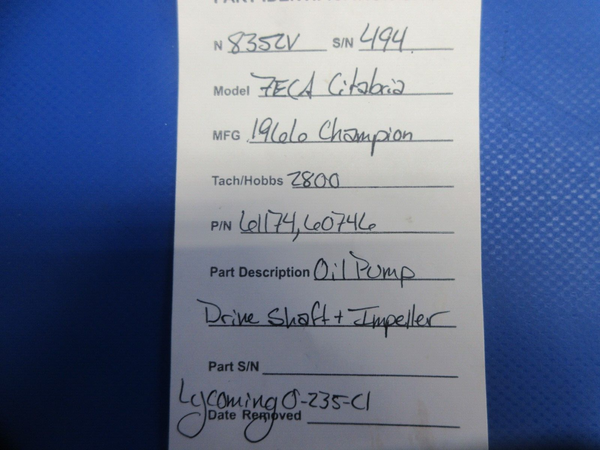 N 8352V S/N 494
Model 7ECA Citabria
MFG 1966 Champion
Tach/Hobbs 2800
P/N 61174, 60746
Part Description Oil Pump
Drive Shaft + Impeller
Part S/N
Lycoming O-235-C1
Date Removed